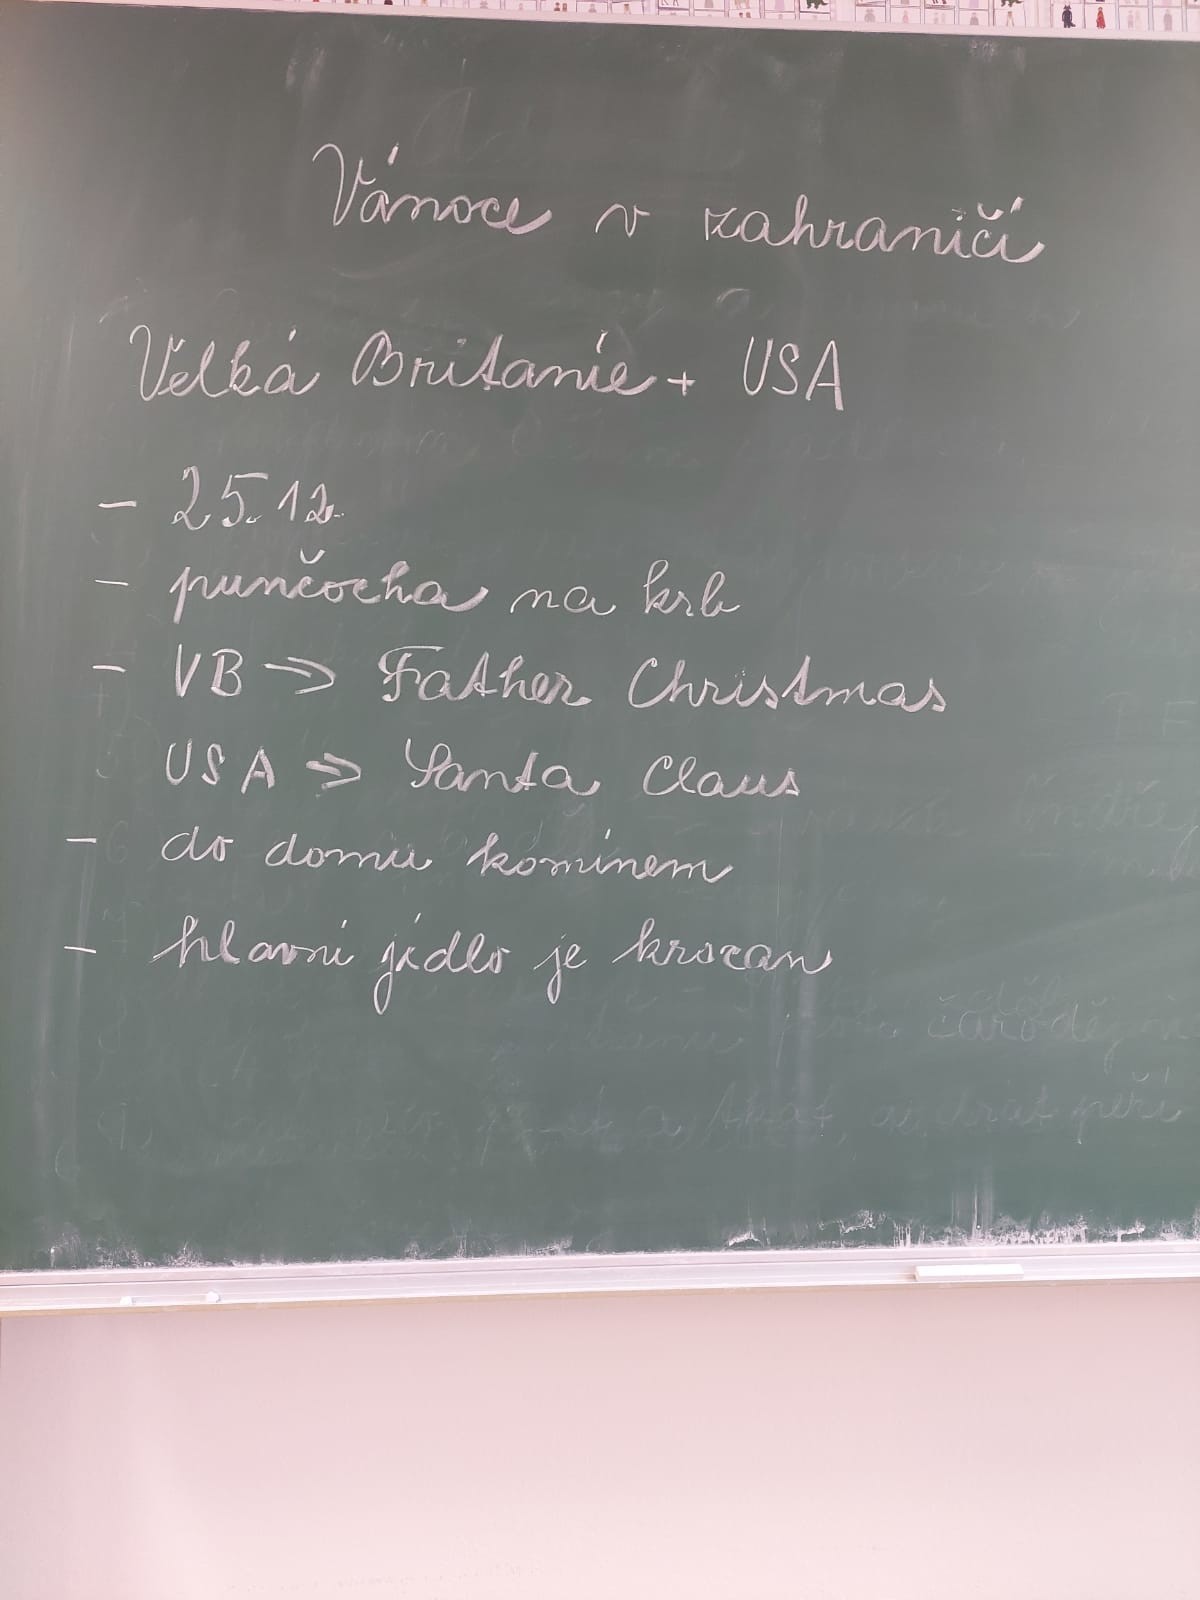 Vánoce v zahraničí
Velká Británie + USA
- 25. 12.
- punčocha na krb
- VB ⇒ Father Christmas
USA ⇒ Santa Claus
- do domu komínem
- hlavní jídlo je krocan